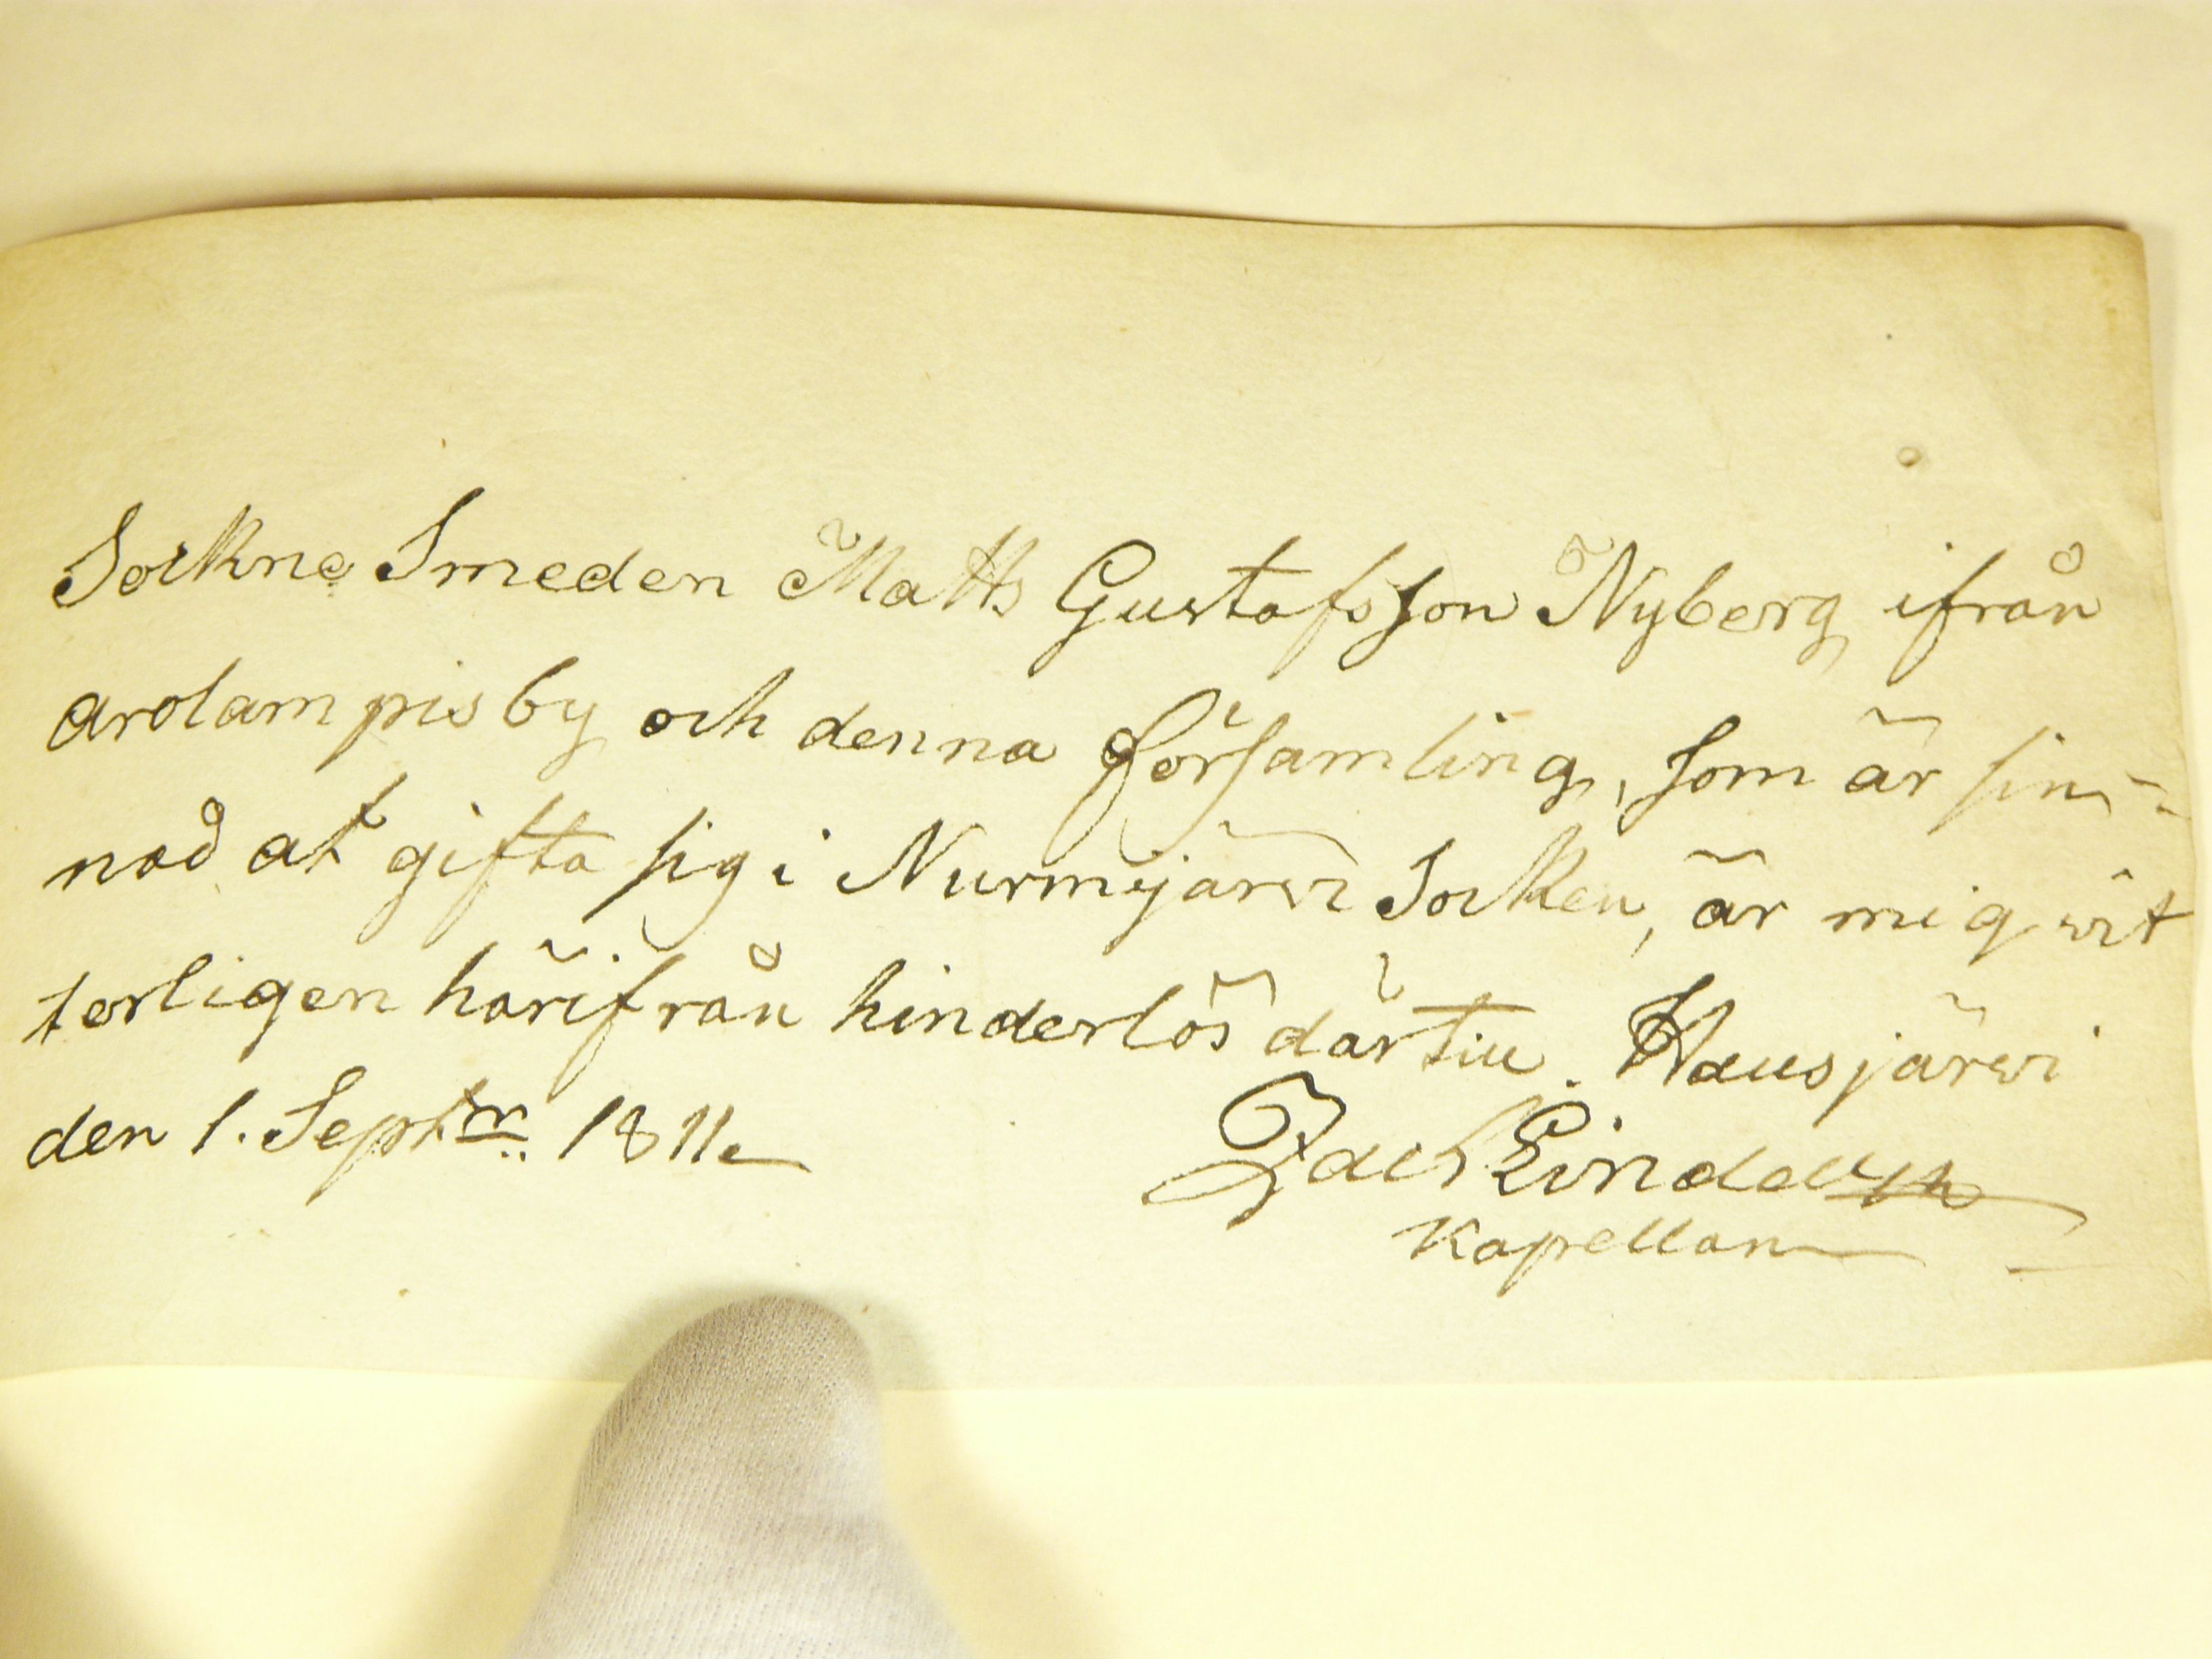 Sockne Smeden Matts Gustafsson Nyberg ifrån
Arolampis by och denna Församling, som är sin-
nad at gifta sig i Nurmijärvi Socken, är mig vit
terligen härifrån hinderlös därtill. Hausjärvi
den 1. Septr. 1811
Zach
Kapellan